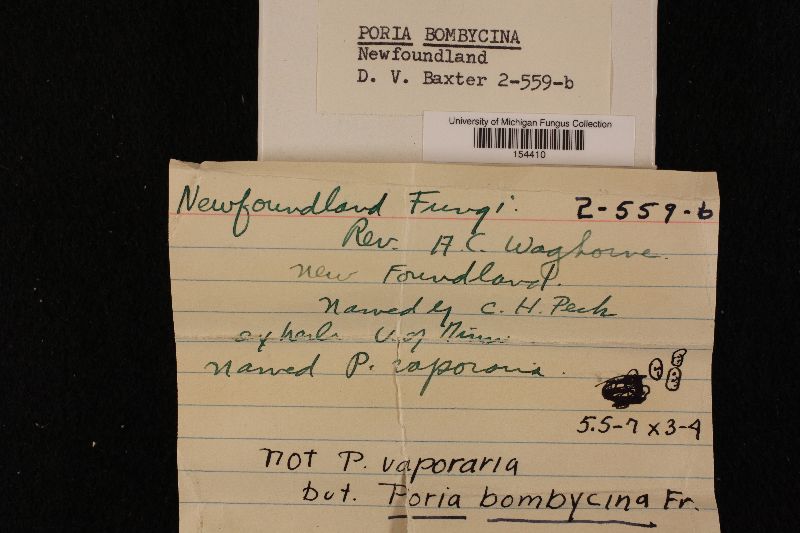 PORIA BOMBYCINA
Newfoundland
D. V. Baxter 2-559-b
University of Michigan Fungus Collection
154410
Newfoundland Fungi. 2-559-b
Rev. A.C. Waghorne.
New Foundland.
Named by C. H. Peck
ex herb. U. of Minn.
named P. vaporaria.
5.5-7 x 3-4
not P. vaporaria
but. Poria bombycina Fr.